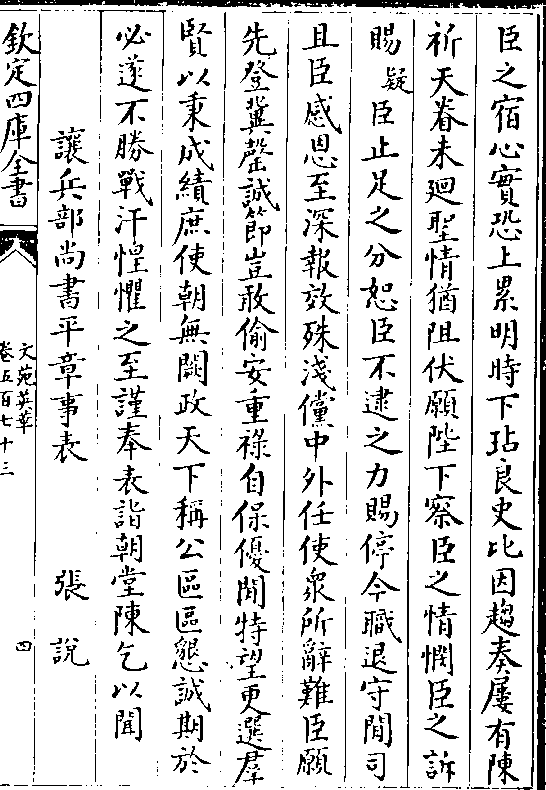 臣之宿心實恐上累明時下玷良史比因趨奏屢有陳
祈天眷未迴聖情猶阻伏願陛下察臣之情憫臣之訴
賜疑臣止足之分恕臣不逮之力賜停今職退守閒司
且臣感恩至深報效殊淺儻中外任使衆所辭難臣願
先登冀罄誠節豈敢偷安重祿自保優閒特望更選羣
賢以秉成績庶使朝無闕政天下稱公區區懇誠期於
必遂不勝戰汗惶懼之至謹奉表詣朝堂陳乞以聞
讓兵部尚書平章事表 張說
欽定四庫全書
文苑英華
卷五百七十三
四